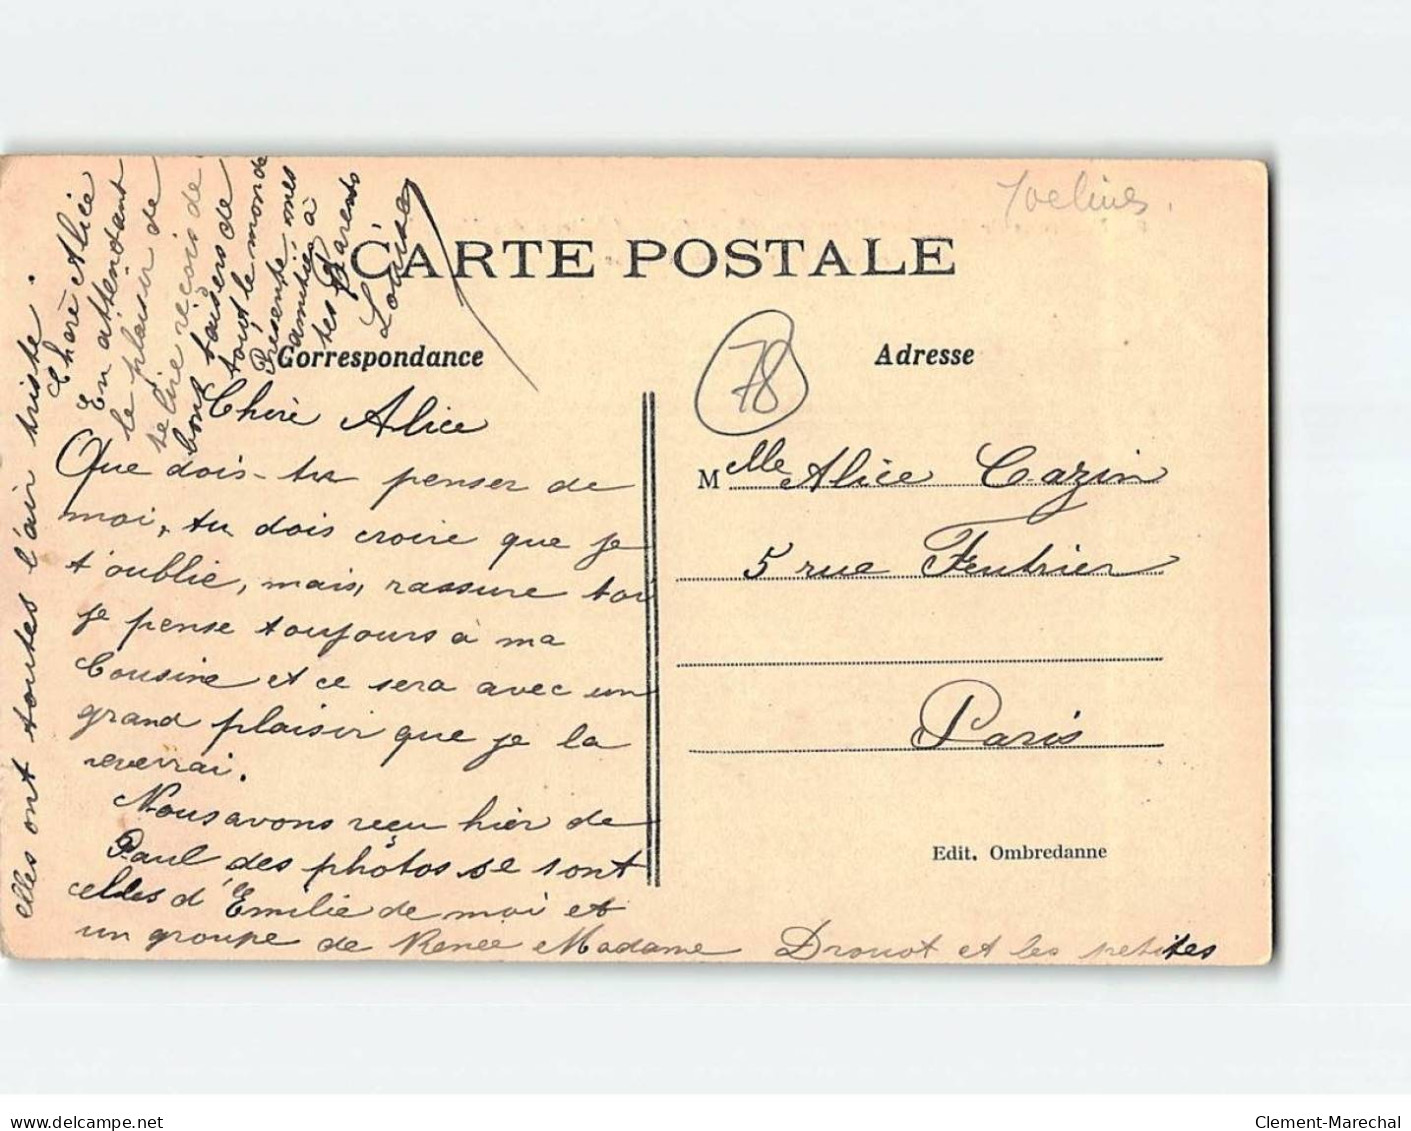 Yvelines.
CARTE POSTALE
Correspondance
Adresse
78
Chère Alice
Que dois-tu penser de
moi, tu dois croire que je
t'oublie, mais, rassure toi
je pense toujours à ma
Cousine et ce sera avec un
grand plaisir que je la
reverrai.
Nous avons reçu hier de
Paul des photos se sont
celles d'Emilie de moi et
un groupe de Renée Madame Drouot et les petites
elles ont toutes l'air triste.
Chère Alice
En attendant
le plaisir de
te lire reçois de
bons baisers de
tout le monde
Présente mes
amitiés à
tes Parents
Louise
Mlle Alice Cazin
5 rue Feutrier
Paris
Edit. Ombredanne
delcampe.net
Clement-Marechal